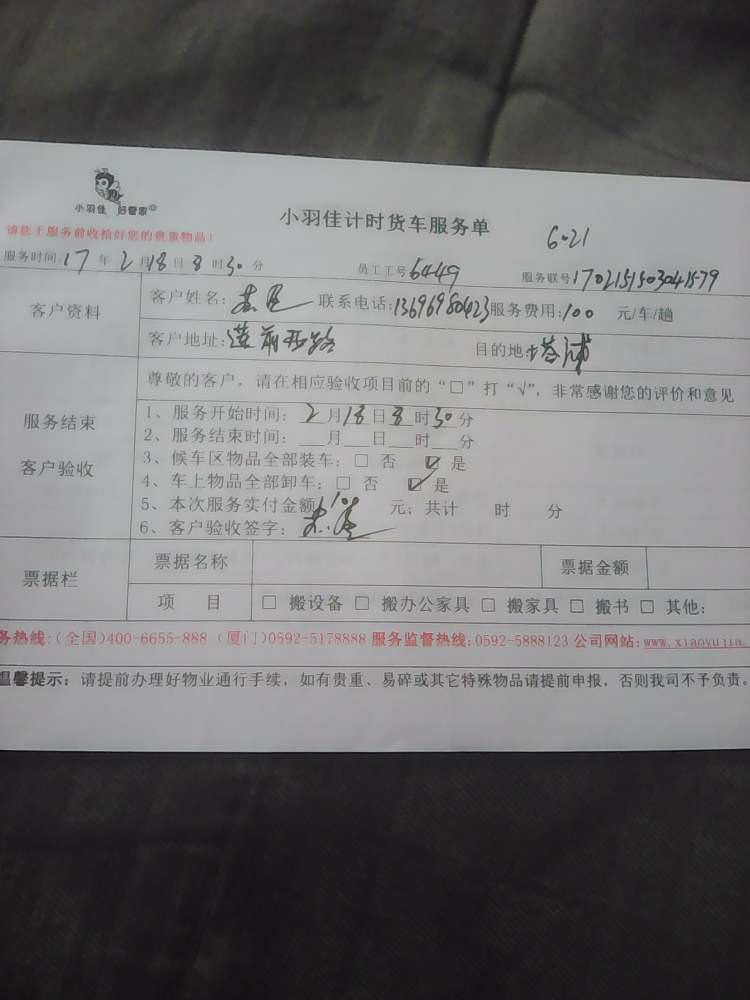 小羽佳 好管家
小羽佳计时货车服务单
6.21
请您于服务前收拾好您的贵重物品！
服务时间：17年2月18日8时30分 员工工号6449 服务联号
客户资料
客户姓名： 联系电话：13696980423服务费用：100 元/车/趟
客户地址：莲前西路 目的地
服务结束
客户验收
尊敬的客户，请在相应验收项目前的“□”打“√”，非常感谢您的评价和意见
1、服务开始时间：2月18日8时30分
2、服务结束时间：___月___日___时___分
3、候车区物品全部装车：□ 否 ☑ 是
4、车上物品全部卸车：□ 否 ☑ 是
5、本次服务实付金额 元；共计 时 分
6、客户验收签字：
票据栏
票据名称 票据金额
项 目 □ 搬设备 □ 搬办公家具 □ 搬家具 □ 搬书 □ 其他：
务热线：(全国)400-6655-888 (厦门)0592-5178888 服务监督热线：0592-5888123 公司网站：www.xiaoyujia.
温馨提示：请提前办理好物业通行手续，如有贵重、易碎或其它特殊物品请提前申报，否则我司不予负责。